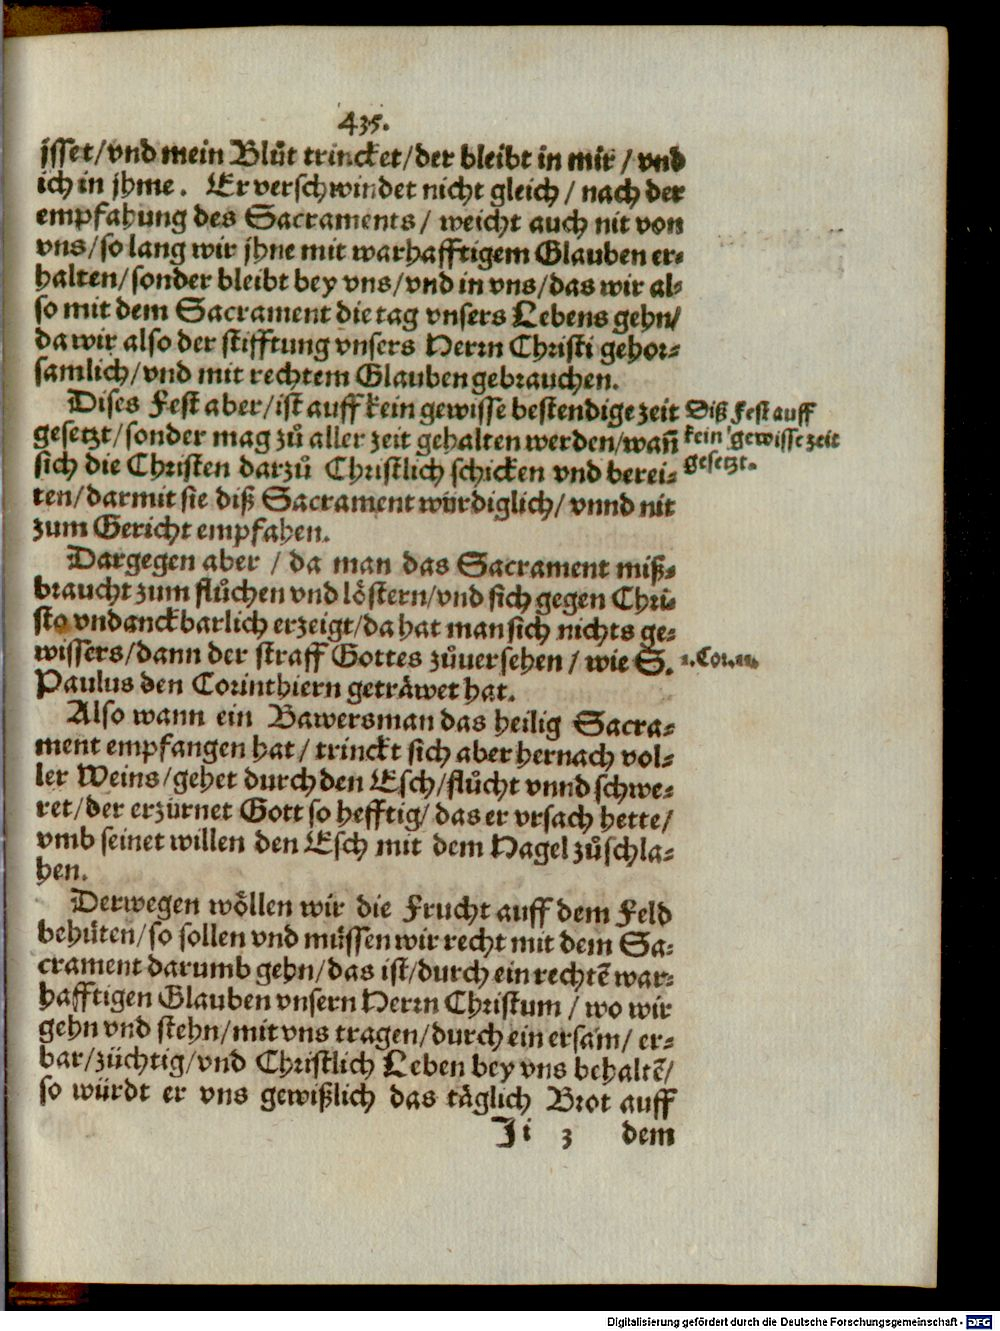 435.
jsset/vnd mein Blůt trincket/der bleibt in mir/vnd
ich in jhme. Er verschwindet nicht gleich/nach der
empfahung des Sacraments/ weicht auch nit von
vns/so lang wir jhne mit warhafftigem Glauben er-
halten/sonder bleibt bey vns/vnd in vns/das wir al-
so mit dem Sacrament die tag vnsers Lebens gehn/
da wir also der stifftung vnsers Herrn Christi gehor-
samlich/vnd mit rechtem Glauben gebrauchen.
Dises Fest aber/ist auff kein gewisse bestendige zeit
gesetzt/sonder mag zů aller zeit gehalten werden/wañ
sich die Christen darzů Christlich schicken vnd berei-
ten/darmit sie diß Sacrament würdiglich/vnnd nit
zum Gericht empfahen.
Diß Fest auff
kein gewisse zeit
gesetzt.
Dargegen aber / da man das Sacrament miß-
braucht zum flůchen vnd löstern/vnd sich gegen Chri-
sto vndanckbarlich erzeigt/da hat man sich nichts ge-
wissers/dann der straff Gottes zůuersehen/wie S.
Paulus den Corinthiern geträwet hat.
1.Cor.11.
Also wann ein Bawersman das heilig Sacra-
ment empfangen hat/trinckt sich aber hernach vol-
ler Weins/gehet durch den Esch/flůcht vnnd schwe-
ret/der erzürnet Gott so hefftig/das er vrsach hette/
vmb seinet willen den Esch mit dem Hagel zůschla-
hen.
Derwegen wöllen wir die Frucht auff dem Feld
behüten/so sollen vnd müssen wir recht mit dem Sa-
crament darumb gehn/das ist/durch ein rechtẽ war-
hafftigen Glauben vnsern Herrn Christum/wo wir
gehn vnd stehn/mit vns tragen/durch ein ersam/er-
bar/züchtig/vnd Christlich Leben bey vns behaltẽ/
so würdt er vns gewißlich das täglich Brot auff
Ji 3 dem
Digitalisierung gefördert durch die Deutsche Forschungsgemeinschaft - DFG